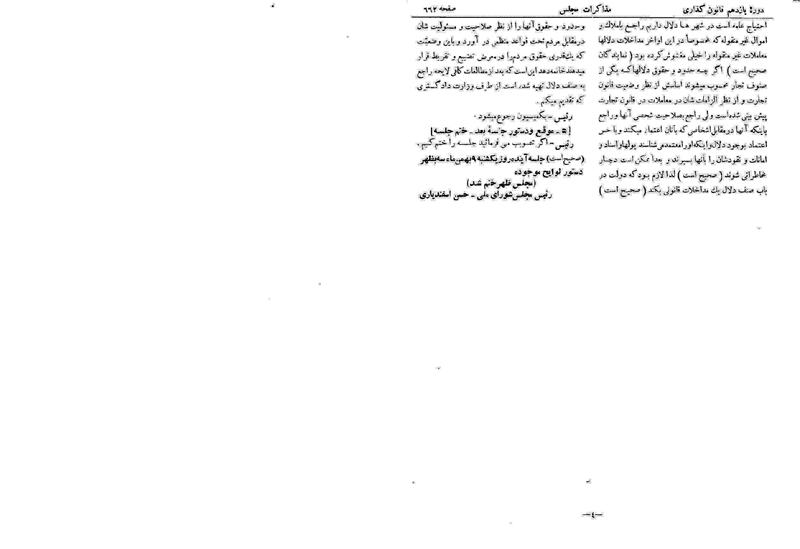 دورهٔ یازدهم قانون گذاری
مذاکرات مجلس
صفحه ۶۶۲
احتیاج عامه است در شهر ها دلال داریم راجع باملاک و
اموال غیر منقوله که مخصوصاً در این اواخر مداخلات دلالها
معاملات غیر منقوله را خیلی مغشوش کرده بود ( نمایندگان
صحیح است ) اگر چه حدود و حقوق دلالها که یکی از
صنوف تجار محسوب میشوند اساسش از نظر وضعیت قانون
تجارت و از نظر الزامات شان در معاملات در قانون تجارت
پیش بینی شده است ولی راجع بصلاحیت شخصی آنها و راجع
باینکه آنها در مقابل اشخاصی که بآنان اعتماد میکنند و با حس
اعتماد بوجود دلال و اینکه او را معتمد می شناسند پولها و اسناد و
امانات و نقودشان را بآنها بسپرند و بعداً ممکن است دچار
مخاطراتی شوند ( صحیح است ) لذا لازم بود که دولت در
باب صنف دلال یک مداخلات قانونی بکند ( صحیح است )
و حدود و حقوق آنها را از نظر صلاحیت و مسئولیت شان
در مقابل مردم تحت قواعد منظمی در آورد و باین وضعیت
که یک قدری حقوق مردم را در معرض تضییع و تفریط قرار
میدهند خاتمه دهد این است که بعد از مطالعات کافی لایحه راجع
به صنف دلال تهیه شده است از طرف وزارت دادگستری
که تقدیم میکنم .
رئیس - بکمیسیون رجوع میشود .
[۵ - موقع و دستور جلسهٔ بعد - ختم جلسه]
رئیس - اگر تصویب می فرمائید جلسه را ختم کنیم .
(صحیح است) جلسه آینده روز یکشنبه ۹ بهمن ماه سه بظهر
دستور لوایح موجوده
(مجلس ظهر ختم شد)
رئیس مجلس شورای ملی - حسن اسفندیاری
—٤—